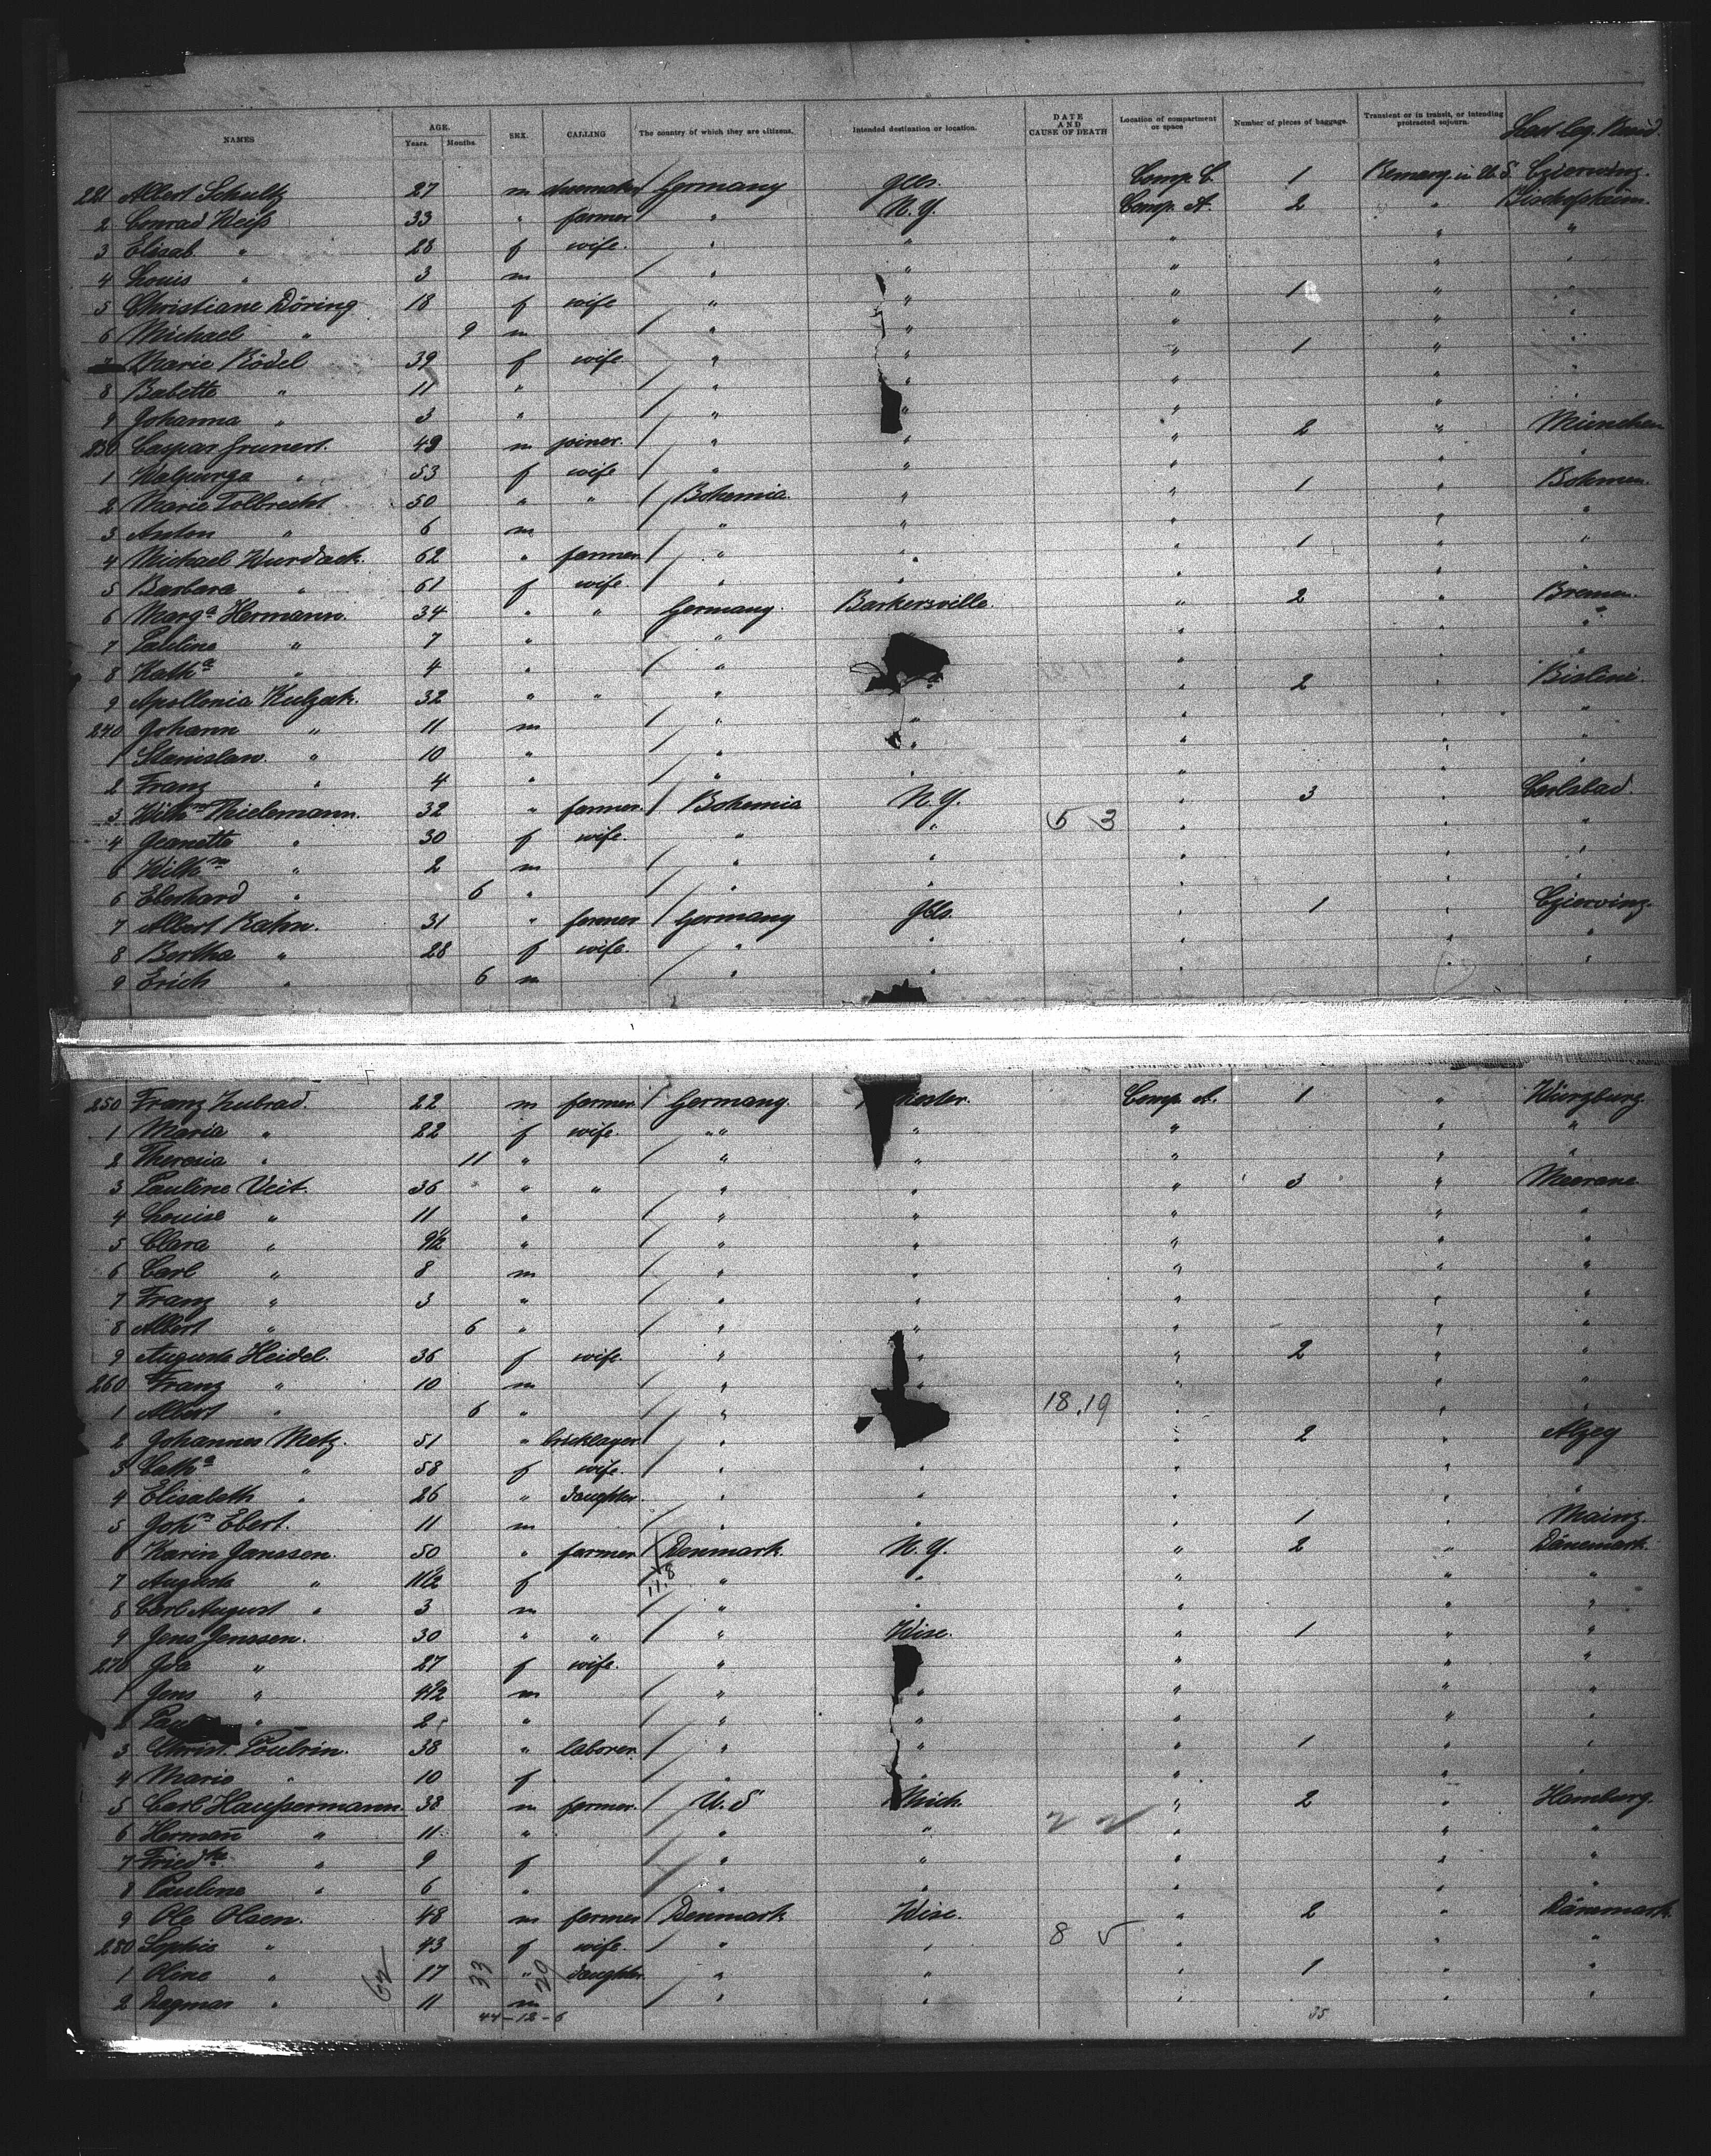 NAMES AGE. Years. Months. SEX. CALLING The country of which they are citizens. Intended destination or location. DATE AND CAUSE OF DEATH Location of compartment or space Number of pieces of baggage. Transient or in transit, or intending protracted sojourn.
221 Albert Schultz 27 m Germany Ills. Comp. C. 1
2 Conrad Weiß 33 " farmer " N.Y. Comp. A. 2 "
3 Elisab. " 28 f wife. " " " " "
4 Louis " 3 m " " " " "
5 Christiane Döring 18 f wife " " " 1 " "
6 Michael " 9 m " " " " "
7 Marie Rödel 39 f wife " " " 1 " "
8 Babette " 11 " " " " " "
9 Johanna " 3 " " " " " "
230 Caspar Grunert. 49 m joiner. " " " 2 " München
1 Walpurga " 53 f wife " " " " "
2 Marie Tolbrecht 50 " " Bohemia. " " 1 " Bohmen.
3 Anton " 6 m " " " " "
4 Michael Wurdack. 62 " farmer " " " 1 " "
5 Barbara " 61 f wife. " " " " "
6 Marg.a Hermann. 34 " " Germany. Barkersville. " 2 " Bremen.
7 Pauline " 7 " " " " "
8 Kath.a " 4 " " " " "
9 Apollonia Kulzak. 32 " " " " 2 "
240 Johann " 11 m " " " " "
1 Stanislaw. " 10 " " " " " "
2 Franz " 4 " " " " " "
3 Wilh.m Thielemann. 32 " farmer. Bohemia N.Y. " 3 " Carlsbad
4 Jeanette " 30 f wife. " " 5 3 " " "
5 Wilh.m " 2 m " " " " "
6 Eberhard " 6 " " " " " "
7 Albert Rahn. 31 " farmer Germany Ills. " 1 "
8 Bertha " 28 f wife. " " " " "
9 Erich " 6 m " " " " "
250 Franz 22 m farmer Germany. Comp. A. 1 " Würzburg.
1 Maria " 22 f wife. " " " " "
2 Theresia " 11 " " " " " "
3 Pauline Veit. 36 " " " " " 3 " Meerane
4 Louise " 11 " " " " " "
5 Clara " 9½ " " " " " "
6 Carl " 8 m " " " " "
7 Franz " 3 " " " " " "
8 Albert " 6 " " " " " "
9 Auguste Heidel. 36 f wife. " " " 2 " "
260 Franz " 10 m " " " " "
1 Albert " 6 " " 18.19 " " "
2 Johannes Metz. 51 " bricklayer " " 2 " Alzey
3 Cath.a " 58 f wife. " " " " "
4 Elisabeth " 26 " daughter. " " " " "
5 Joh.n Ebert. 11 m " " " 1 " Mainz
6 Karin Janssen. 50 " farmer Denmark. N.Y. " 2 " Dänemark
7 Auguste " 11½ f 11.8 " " " " "
8 Carl August " 3 m " " " " "
9 Jens Janssen. 30 " " " Wisc. " 1 " "
270 Ida " 27 f wife. " " " "
1 Jens " 4½ m " " " " "
2 " 2 " " " " " "
3 Christ. Poulrin. 38 " laborer. " " " 1 " "
4 Marie " 10 f " " " "
5 Carl Haußermann. 38 m farmer. U.S Mich. " 2 " Hamburg.
6 Hermañ " 11 " " " " " "
7 Fried.ke " 9 f " " " " "
8 Pauline " 6 " " " " " "
9 Ole Olsen. 48 m farmer Denmark Wisc. " 2 " Dänemark.
280 Sophie " 43 f wife. " " 8 5 " " "
1 Oline " 17 " daughter " " " 1 " "
2 Dagmar " 11 m " " " " "
62 33 29
44-12-6 35